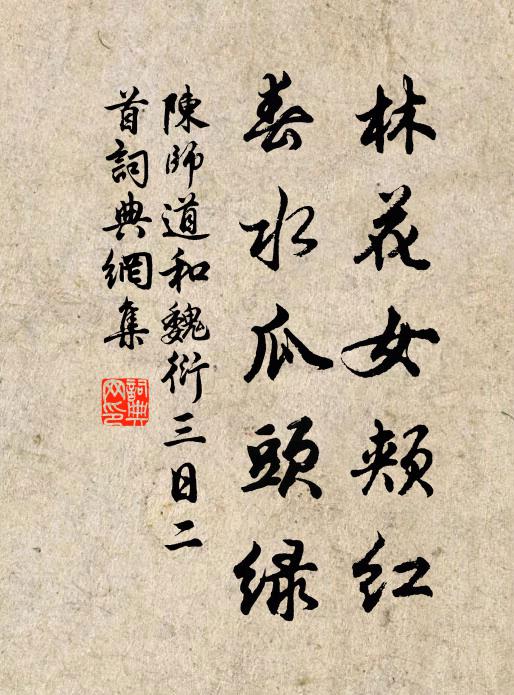 林花女頰紅
春水瓜頭緑
陳師道和魏衍三日二
首詞典網集
詞典网印